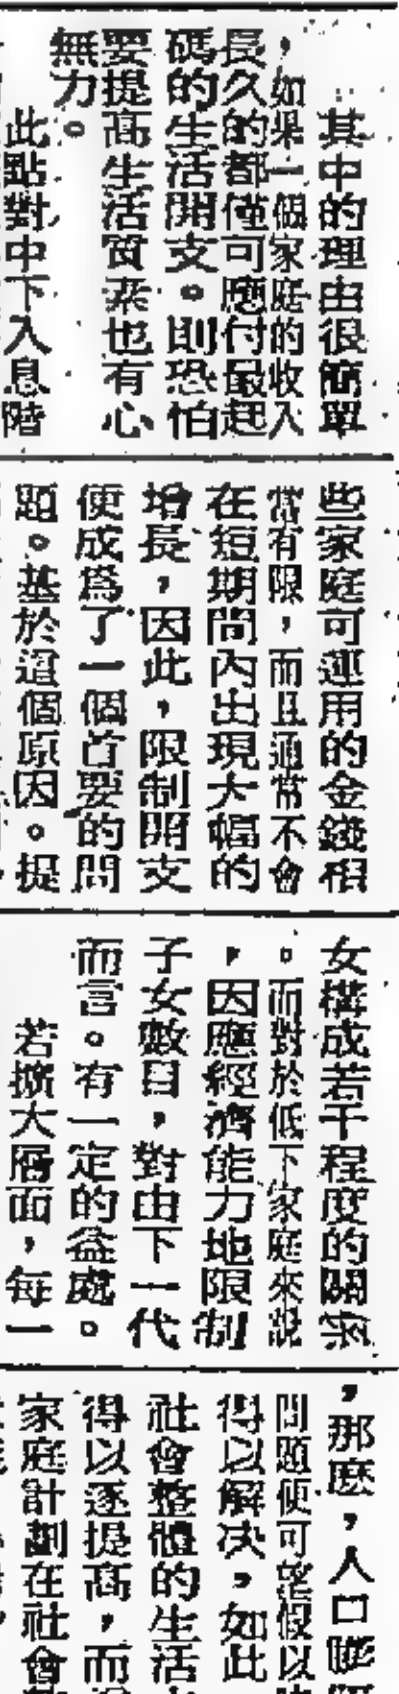 其中的理由很簡單
，如果一個家庭的收入
長久的都僅可應付最起
碼的生活開支。則恐怕
要提高生活質素也有心
無力。
此點對中下入息階
些家庭可運用的金錢相
當有限，而且通常不會
在短期間內出現大幅的
增長，因此，限制開支
便成爲了一個首要的問
題。基於這個原因。提
女構成若干程度的關策
。而對於低下家庭來說
，因應經濟能力地限制
子女數目，對由下一代
而言。有一定的益處。
若擴大層面，每一
，那麽，人口膨
問題便可望假以
得以解决，如此
社會整體的生活
得以逐提高，而
家庭計劃在社會